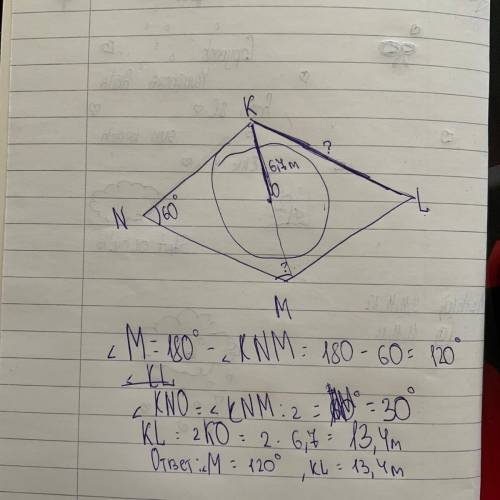 K
?
6,7м
O
N
60°
L
?
M
∠M = 180° - ∠KNM = 180 - 60 = 120°
∠KL
∠KNO = ∠KNM : 2 = = 30°
KL = 2KO = 2 · 6,7 = 13,4м
Ответ: ∠M = 120°, KL = 13,4м